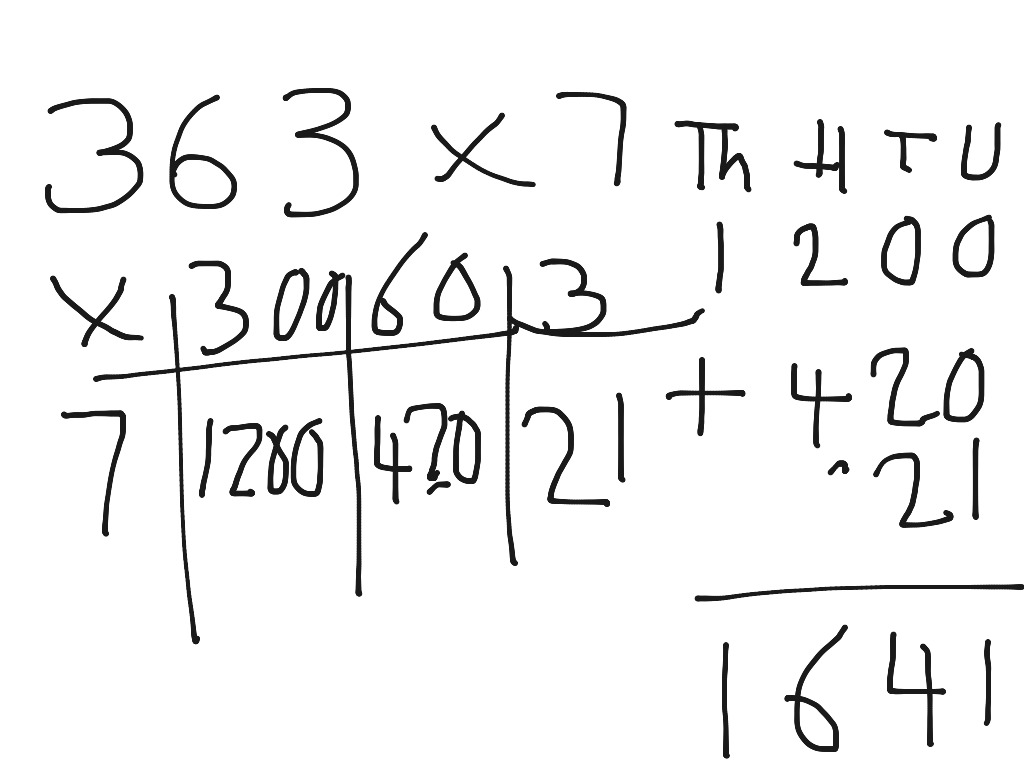 363 x 7 Th H T U
1 2 0 0
x 300 60 3
7 1200 420 21 + 4 2 0
2 1
1 6 4 1